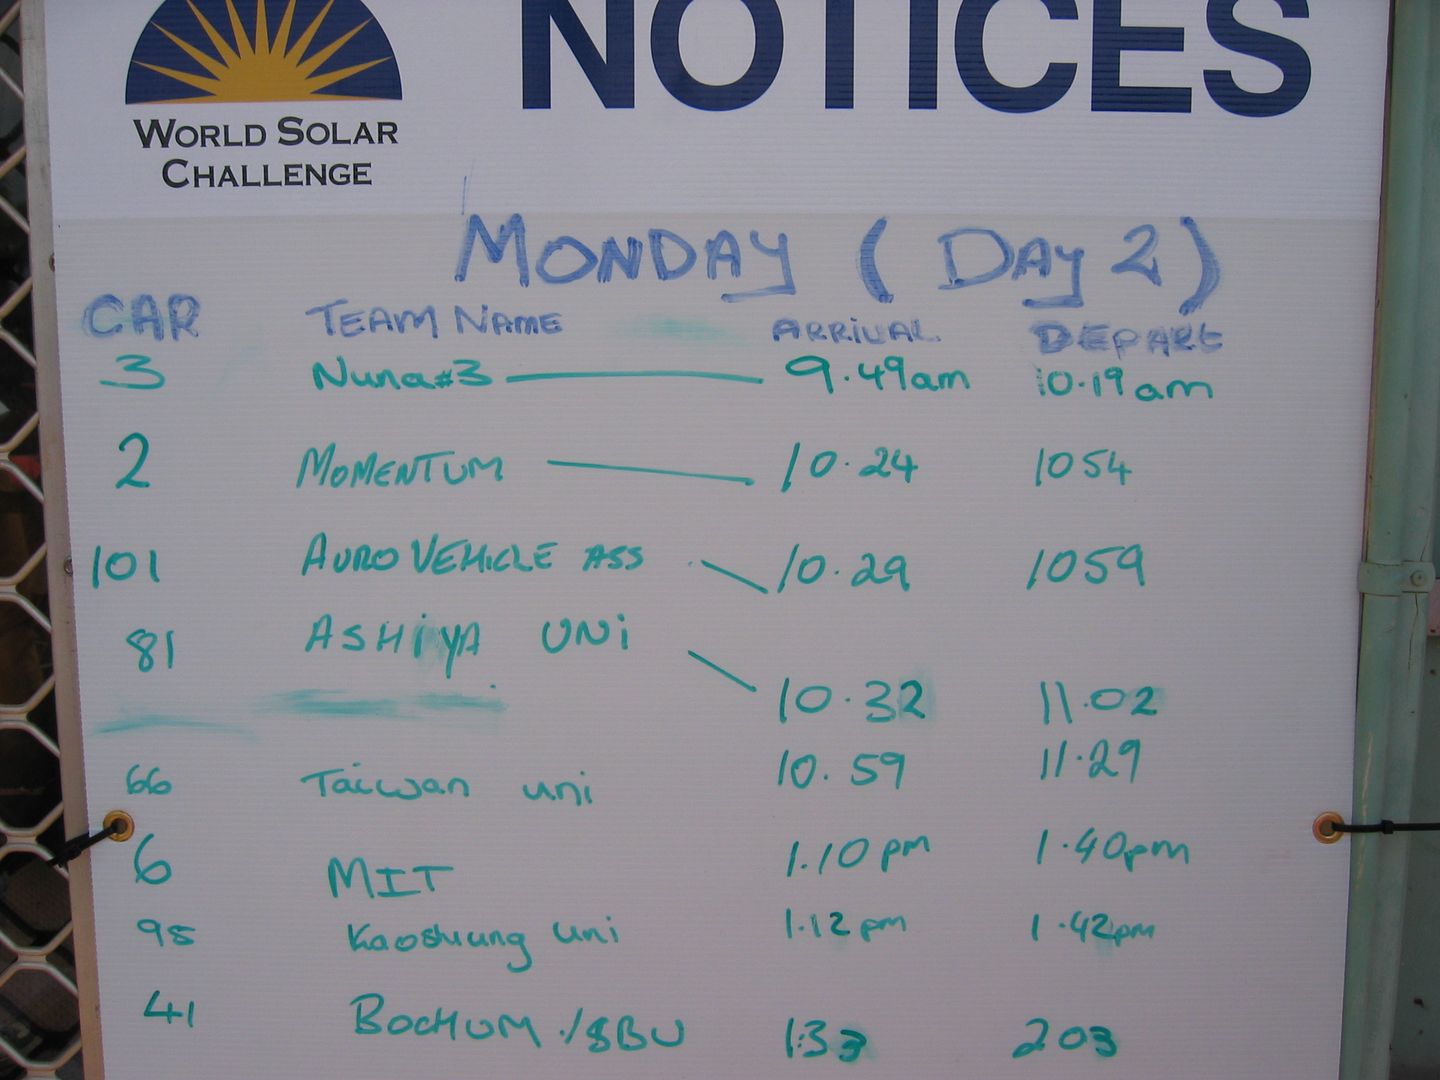 NOTICES
WORLD SOLAR
CHALLENGE
MONDAY (DAY 2)
CAR TEAM NAME ARRIVAL DEPART
3 Nuna#3 9.49am 10.19am
2 MOMENTUM 10.24 1054
101 AURO VEHICLE ASS 10.29 1059
81 ASHIYA UNi 10.32 11.02
66 Taiwan uni 10.59 11.29
6 MIT 1.10pm 1.40pm
95 Kaoshiung Uni 1.12pm 1.42pm
41 BOCHUM /SBU 1:33 203